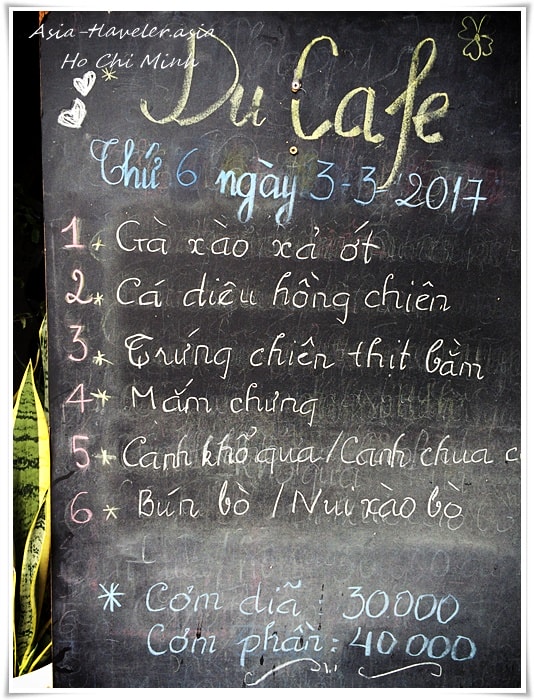 Asia-Traveler.asia
Ho Chi Minh
Du Cafe
Thứ 6 ngày 3-3-2017
1 * Gà xào xả ớt
2 * Cá diêu hồng chiên
3 * Trứng chiên thịt bằm
4 * Mắm chưng
5 * Cành khổ qua / Canh chua c
6 * Bún bò / Nui xào bò
* Cơm diã : 30000
Cơm phần : 40 000